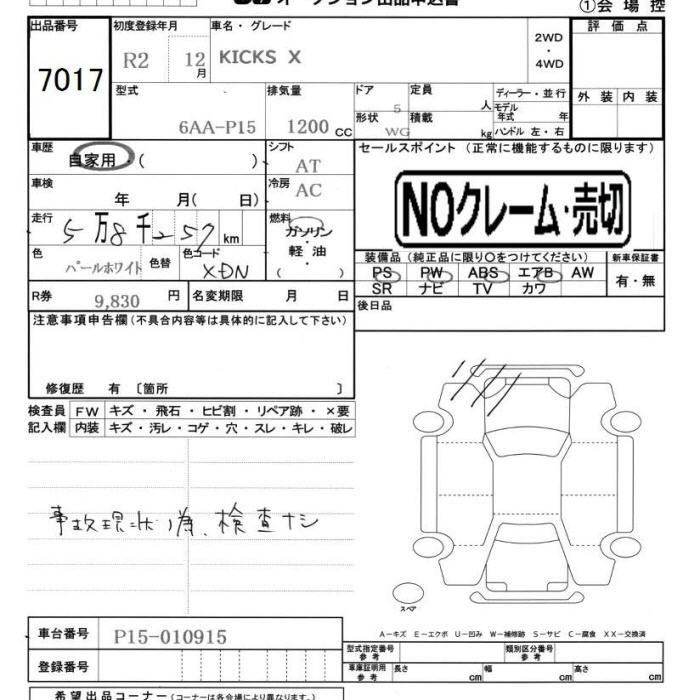 オークション出品申込書
①会場控
出品番号
7017
初度登録年月
R2 12月
車名・グレード
KICKS X
2WD
・
4WD
評価点
型式
6AA-P15
排気量
1200 CC
ドア
5
形状
WG
定員
人
積載
kg
ディーラー・並行
モデル年式 年
ハンドル 左・右
外装 内装
車歴
自家用・( )
シフト
AT
セールスポイント (正常に機能するものに限ります)
NOクレーム・売切
車検
年 月( 日)
冷房
AC
走行
5万8千257 km
燃料
ガソリン
・
軽油
( )
色
パールホワイト
色替
色コード
XDN
装備品 (純正品に限り〇をつけてください)
PS PW ABS エアB AW
SR ナビ TV カワ
新車保証書
有・無
R券
9,830 円
名変期限 月 日
後日品
注意事項申告欄 (不具合内容等は具体的に記入して下さい)
修復歴 有 〔箇所 〕
検査員記入欄
FW キズ・飛石・ヒビ割・リペア跡・×要
内装 キズ・汚レ・コゲ・穴・スレ・キレ・破レ
事故現状の為、検査ナシ
スペア
A－キズ E－エクボ U－凹み W－補修跡 S－サビ C－腐食 XX－交換済
車台番号
P15-010915
登録番号
型式指定番号
参考
類別区分番号
参考
車庫証明用
参考
長さ cm 幅 cm 高さ cm
希望出品コーナー (コーナーは各会場により異なります。)